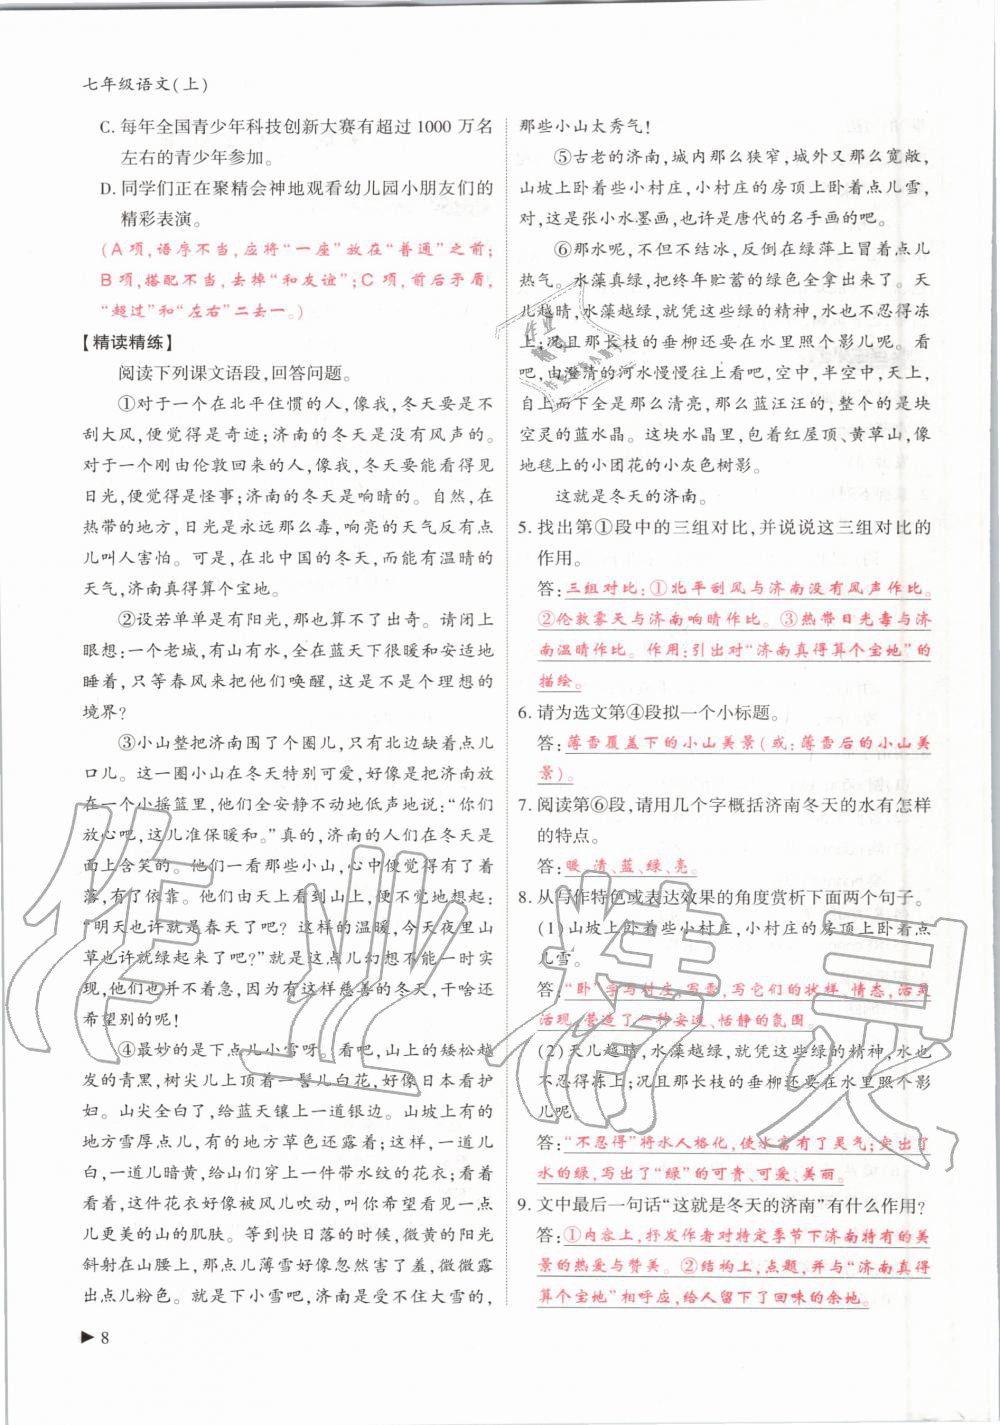 七年级语文(上)
C. 每年全国青少年科技创新大赛有超过 1000 万名
左右的青少年参加。
D. 同学们正在聚精会神地观看幼儿园小朋友们的
精彩表演。
(A 项,语序不当,应将“一座”放在“普通”之前;
B 项,搭配不当,去掉“和友谊”;C 项,前后矛盾,
“超过”和“左右”二去一。)
【精读精练】
阅读下列课文语段,回答问题。
①对于一个在北平住惯的人,像我,冬天要是不
刮大风,便觉得是奇迹;济南的冬天是没有风声的。
对于一个刚由伦敦回来的人,像我,冬天要能看得见
日光,便觉得是怪事;济南的冬天是响晴的。自然,在
热带的地方,日光是永远那么毒,响亮的天气反有点
儿叫人害怕。可是,在北中国的冬天,而能有温晴的
天气,济南真得算个宝地。
②设若单单是有阳光,那也算不了出奇。请闭上
眼想:一个老城,有山有水,全在蓝天下很暖和安适地
睡着,只等春风来把他们唤醒,这是不是个理想的
境界?
③小山整把济南围了个圈儿,只有北边缺着点儿
口儿。这一圈小山在冬天特别可爱,好像是把济南放
在一个小摇篮里,他们全安静不动地低声地说:“你们
放心吧,这儿准保暖和。”真的,济南的人们在冬天是
面上含笑的。他们一看那些小山,心中便觉得有了着
落,有了依靠。他们由天上看到山上,便不觉地想起:
“明天也许就是春天了吧?这样的温暖,今天夜里山
草也许就绿起来了吧?”就是这点儿幻想不能一时实
现,他们也并不着急,因为有这样慈善的冬天,干啥还
希望别的呢!
④最妙的是下点儿小雪呀。看吧,山上的矮松越
发的青黑,树尖儿上顶着一髻儿白花,好像日本看护
妇。山尖全白了,给蓝天镶上一道银边。山坡上有的
地方雪厚点儿,有的地方草色还露着;这样,一道儿
白,一道儿暗黄,给山们穿上一件带水纹的花衣;看着
看着,这件花衣好像被风儿吹动,叫你希望看见一点
儿更美的山的肌肤。等到快日落的时候,微黄的阳光
斜射在山腰上,那点儿薄雪好像忽然害了羞,微微露
出点儿粉色。就是下小雪吧,济南是受不住大雪的,
那些小山太秀气!
⑤古老的济南,城内那么狭窄,城外又那么宽敞,
山坡上卧着些小村庄,小村庄的房顶上卧着点儿雪,
对,这是张小水墨画,也许是唐代的名手画的吧。
⑥那水呢,不但不结冰,反倒在绿萍上冒着点儿
热气。水藻真绿,把终年贮蓄的绿色全拿出来了。天
儿越晴,水藻越绿,就凭这些绿的精神,水也不忍得冻
上;况且那长枝的垂柳还要在水里照个影儿呢。看
吧,由澄清的河水慢慢往上看吧,空中,半空中,天上,
自上而下全是那么清亮,那么蓝汪汪的,整个的是块
空灵的蓝水晶。这块水晶里,包着红屋顶,黄草山,像
地毯上的小团花的小灰色树影。
这就是冬天的济南。
5. 找出第①段中的三组对比,并说说这三组对比的
作用。
答:三组对比:①北平刮风与济南没有风声作比。
②伦敦雾天与济南响晴作比。③热带日光毒与济
南温晴作比。作用:引出对“济南真得算个宝地”的
描绘。
6. 请为选文第④段拟一个小标题。
答:薄雪覆盖下的小山美景(或:薄雪后的小山美
景)。
7. 阅读第⑥段,请用几个字概括济南冬天的水有怎样
的特点。
答:暖、清、蓝、绿、亮。
8. 从写作特色或表达效果的角度赏析下面两个句子。
(1)山坡上卧着些小村庄,小村庄的房顶上卧着点
儿雪。
答:“卧”字写村庄,写雪,写它们的状样、情态,活灵
活现,营造了一种安适、恬静的氛围。
(2)天儿越晴,水藻越绿,就凭这些绿的精神,水也
不忍得冻上;况且那长枝的垂柳还要在水里照个影
儿呢。
答:“不忍得”将水人格化,使水富有了灵气;突出了
水的绿,写出了“绿”的可贵、可爱、美丽。
9. 文中最后一句话“这就是冬天的济南”有什么作用?
答:①内容上,抒发作者对特定季节下济南特有的美
景的热爱与赞美。②结构上,点题,并与“济南真得
算个宝地”相呼应,给人留下了回味的余地。
▶ 8
作业精灵